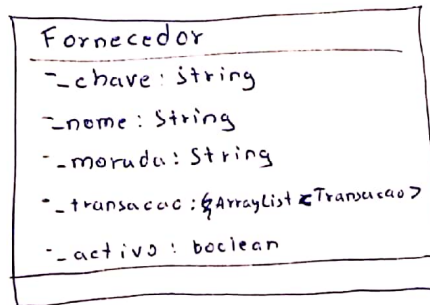 Fornecedor
-_chave: String
-_nome: String
-_morada: String
-_transacao: ArrayList <Transacao>
-_activo: boolean